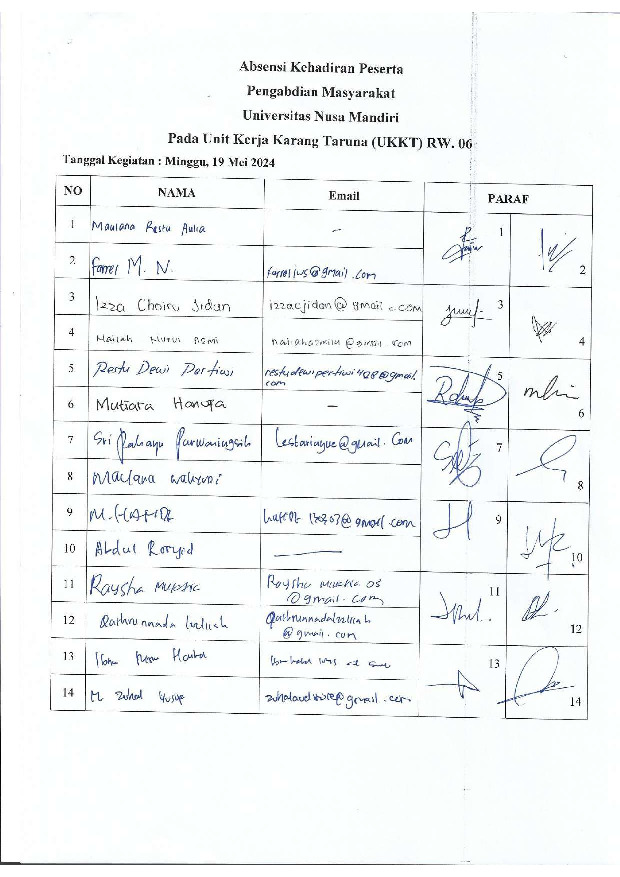 Absensi Kehadiran Peserta
Pengabdian Masyarakat
Universitas Nusa Mandiri
Pada Unit Kerja Karang Taruna (UKKT) RW. 06
Tanggal Kegiatan : Minggu, 19 Mei 2024
NO NAMA Email PARAF
1 Maulana Restu Aulia – 1
2 Farrel M. N. farrelius@gmail.com 2
3 Izza Choiru Jidan izzacjidan@gmail.com 3
4 Nailah Nurul 4
5 Restu Dewi Pertiwi restudewipertiwi428@gmail.
com 5
6 Mutiara – 6
7 Sri Rahayu Purwaningsih Lestariayue@gmail.com 7
8 Maulana Wahyudi 8
9 M. HAFIDZ 9
10 Abdul Rosyid — 10
11 Raysha Mukhia
@gmail.com 11
12 Qathrunnada
@gmail.com 12
13 13
14 M Zuhal Yusuf @gmail.com 14